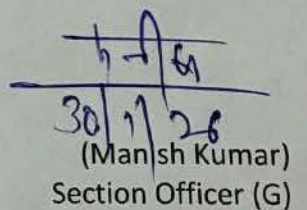 30/1/26
(Manish Kumar)
Section Officer (G)